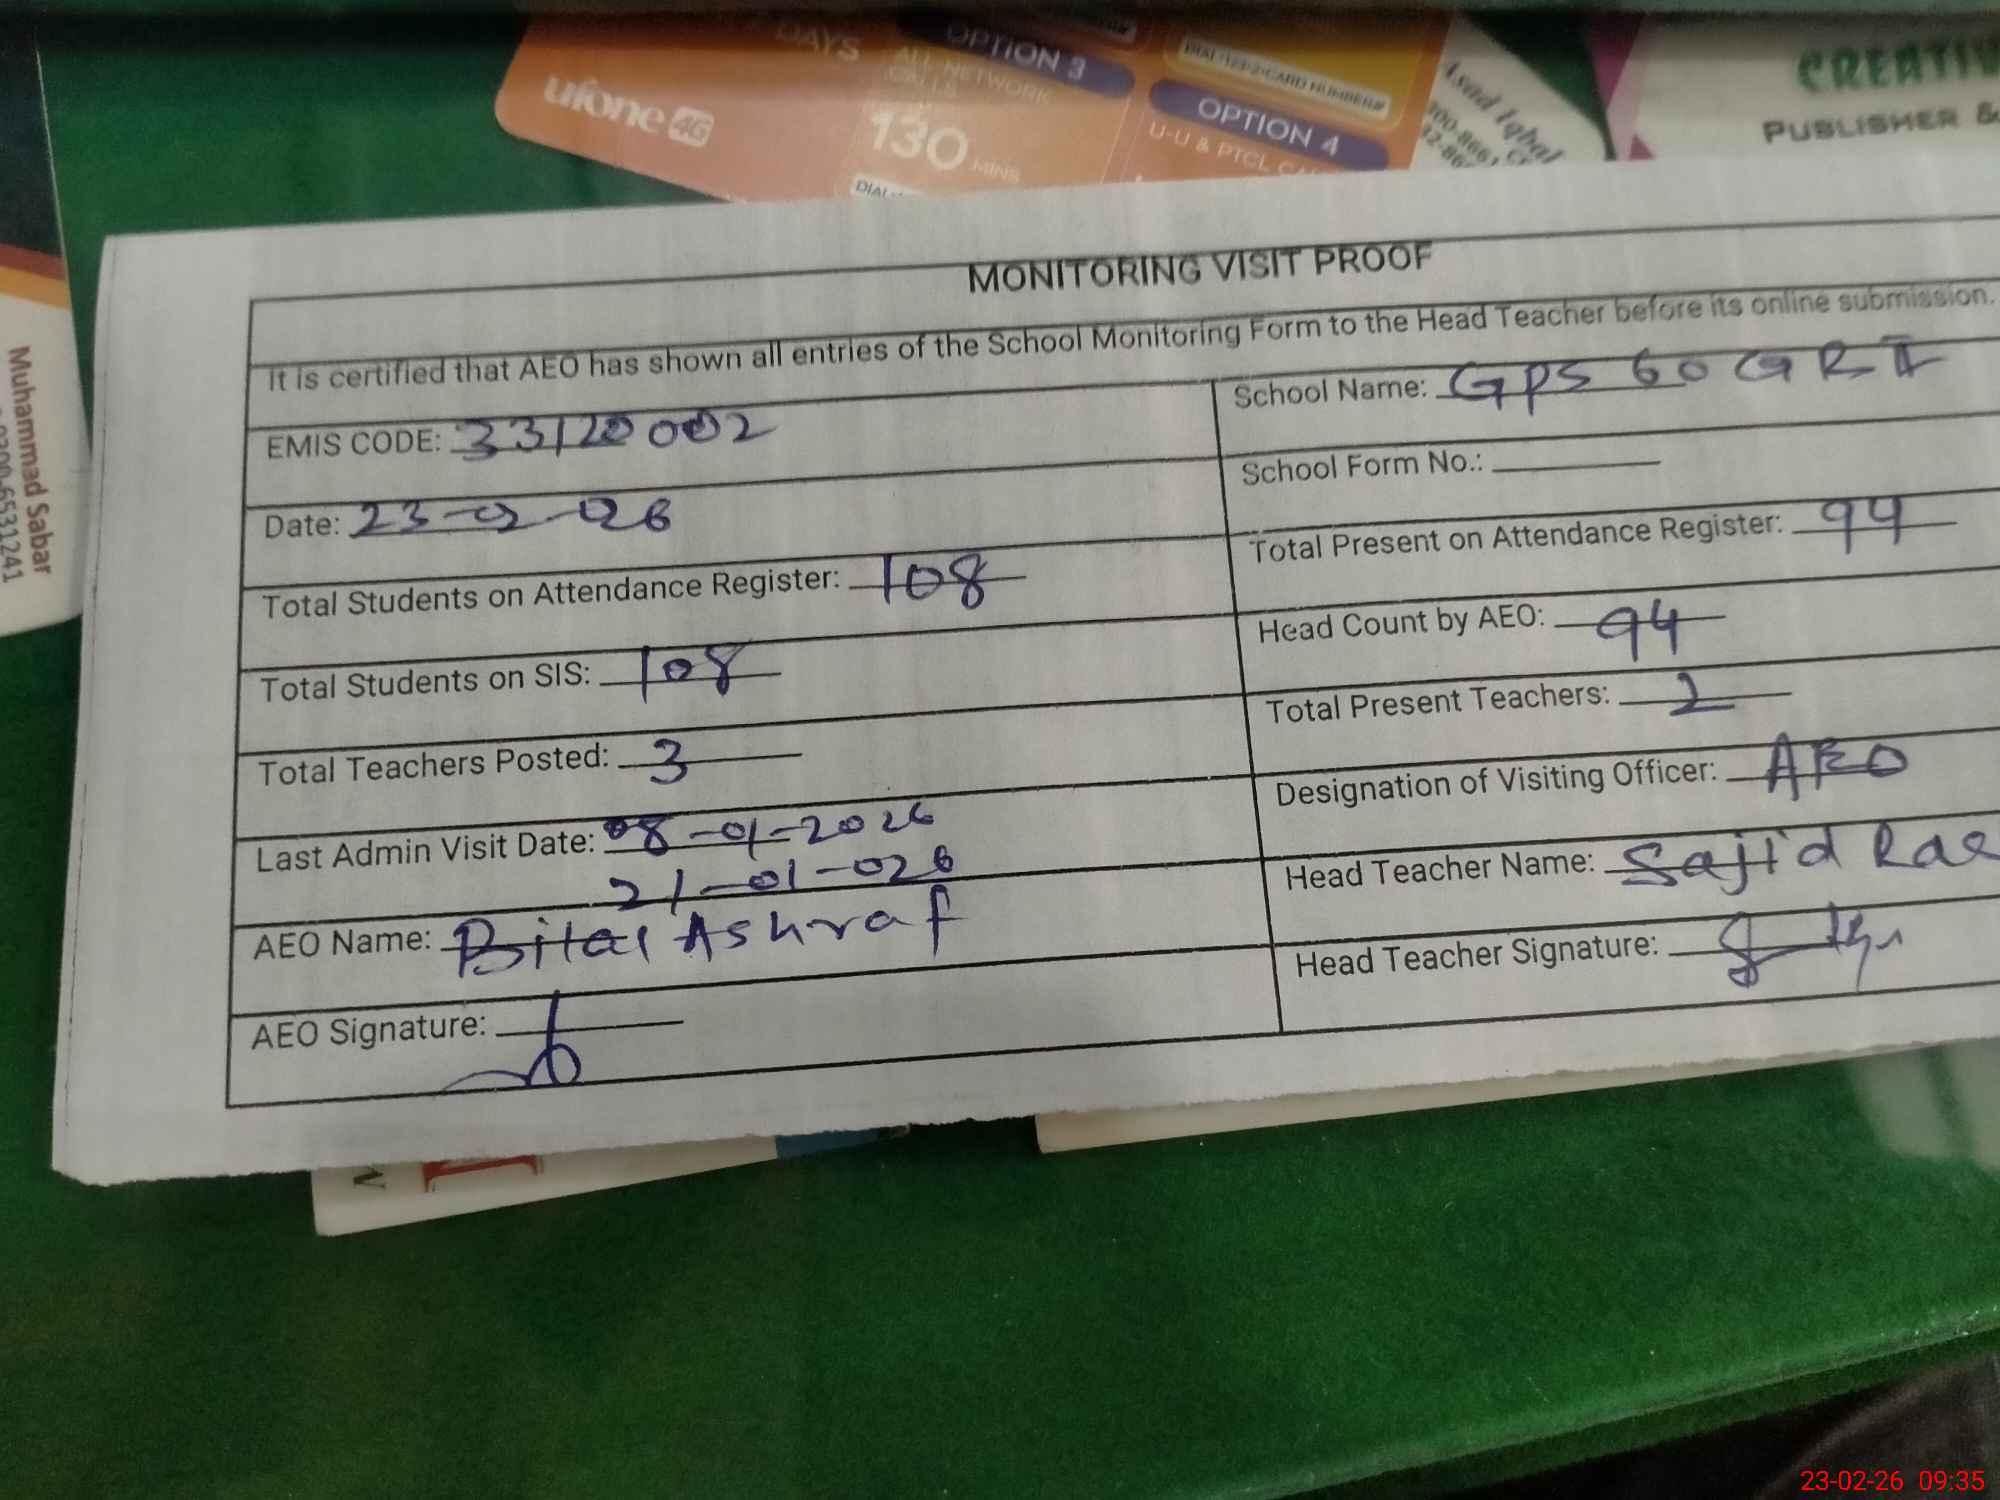 DAYS
OPTION 3
DIAL*123*2*CARD NUMBER#
CREATIV
ufone 4G
ALL NETWORK
CALLS
OPTION 4
Asad Iqbal
PUBLISHER &
130 MINS
U-U & PTCL
DIAL
MONITORING VISIT PROOF
It is certified that AEO has shown all entries of the School Monitoring Form to the Head Teacher before its online submission.
EMIS CODE: 33120002
School Name: GPS 60 GR I
Date: 23-02-26
School Form No.:
Total Students on Attendance Register: 108
Total Present on Attendance Register: 94
Total Students on SIS: 108
Head Count by AEO: 94
Total Teachers Posted: 3
Total Present Teachers: 2
Last Admin Visit Date: 08-01-2026
21-01-026
Designation of Visiting Officer: AEO
AEO Name: Bilal Ashraf
Head Teacher Name: Sajid
AEO Signature:
Head Teacher Signature:
Muhammad Sabar
6531241
23-02-26 09:35